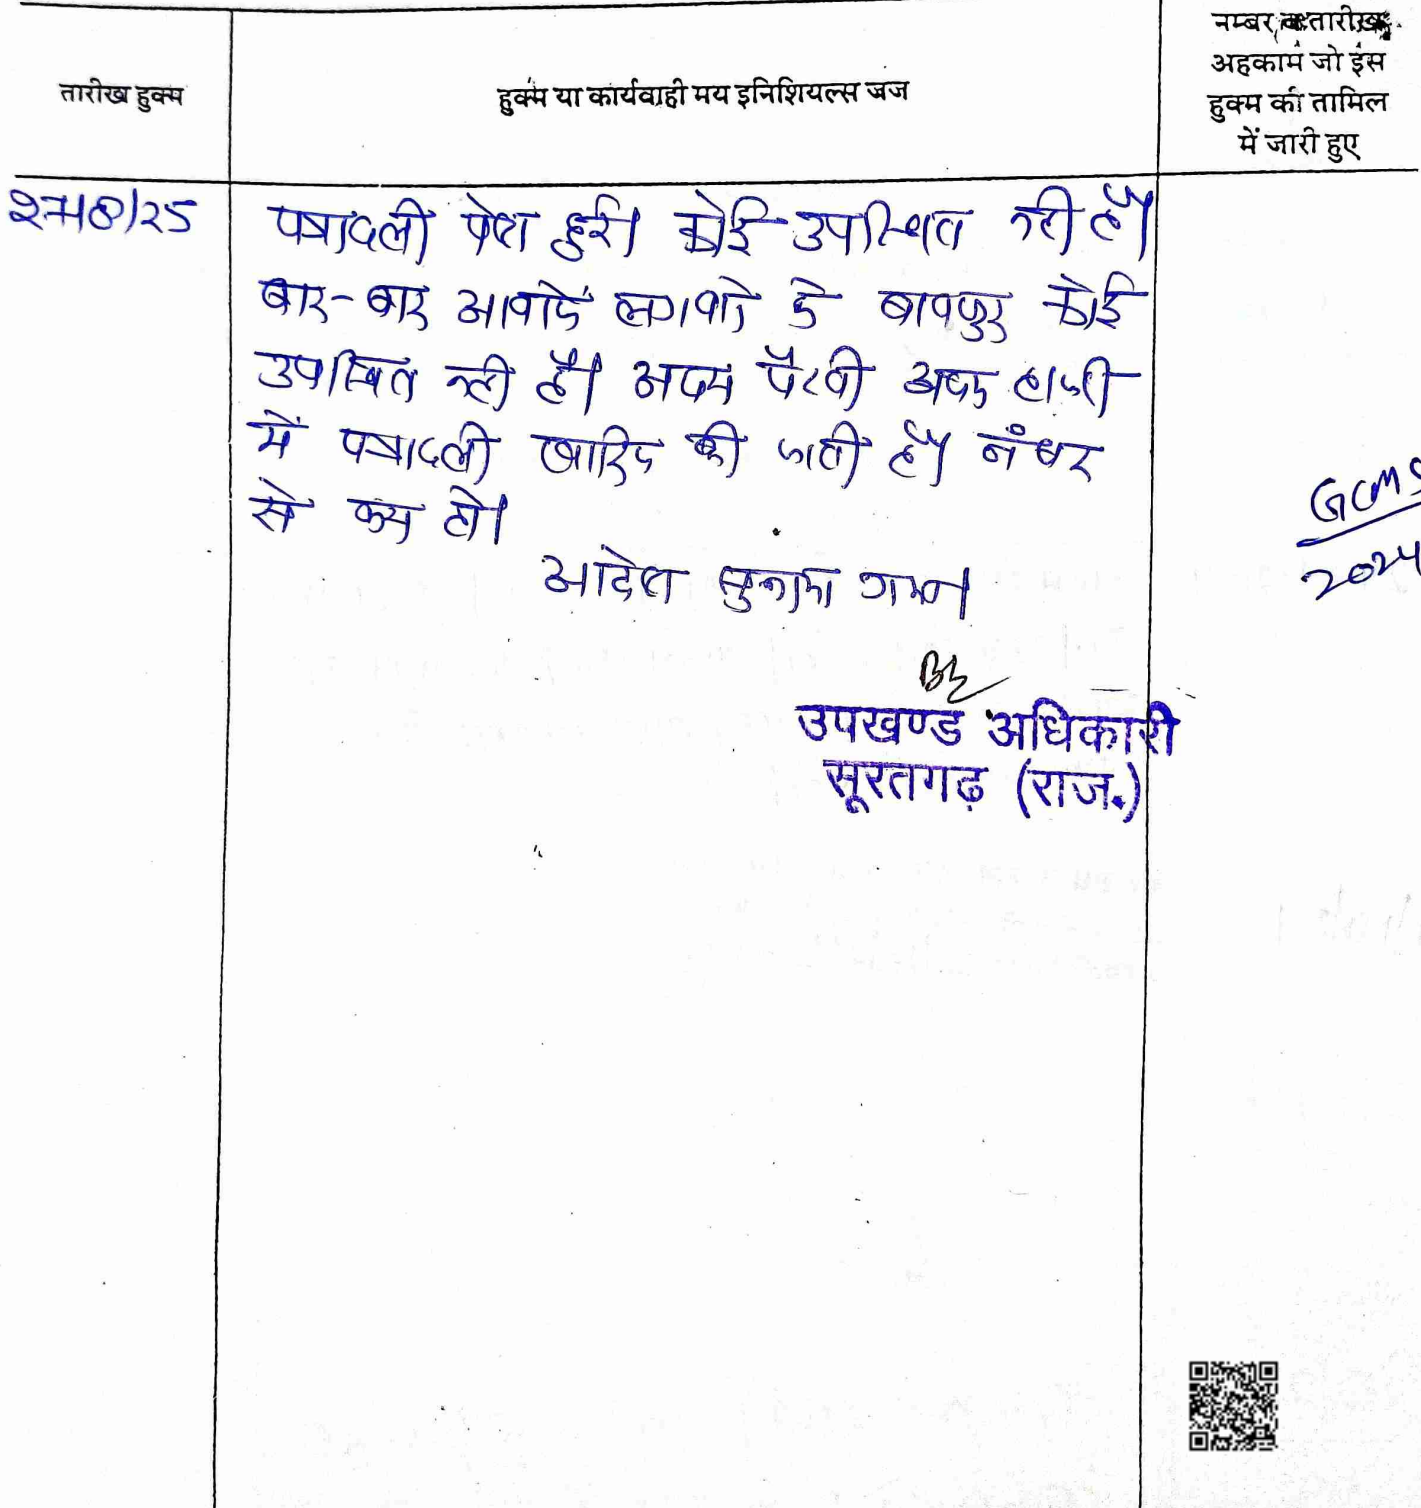 तारीख हुक्म
हुक्म या कार्यवाही मय इनिशियल्स जज
नम्बर व तारीख
अहकाम जो इस
हुक्म की तामिल
में जारी हुए
पत्रावली पेश हुई। कोई उपस्थित नही है।
बार-बार आवाजे लगवाने के बावजुद कोई
उपस्थित नही है। अदम पैरवी अदम हाजरी
में पत्रावली खारिज की जाती है। नंबर
से कम हो।
आदेश सुनाया गया।
GCMS
2024
उपखण्ड अधिकारी
सूरतगढ़ (राज.)